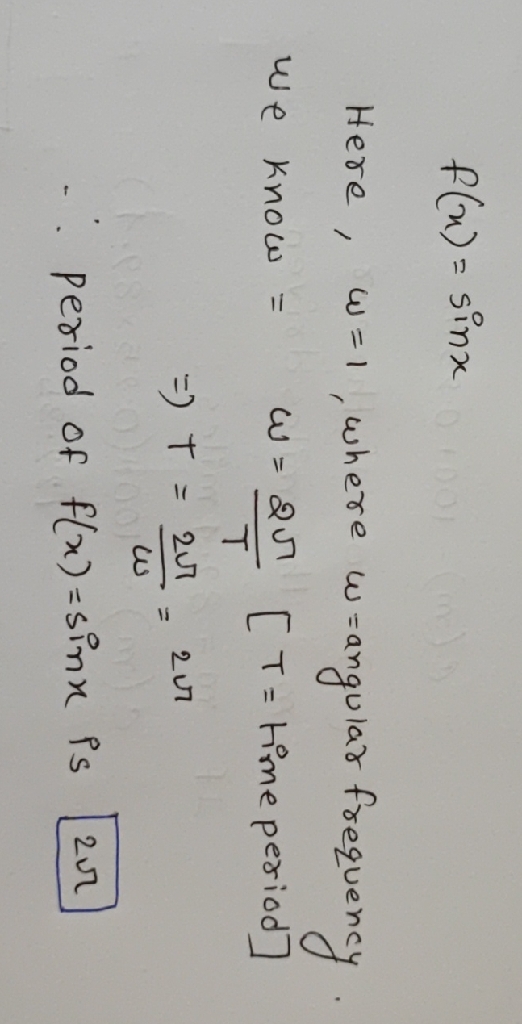 f(x) = sinx
Here, w=1, where w=angular frequency.
we know = w = 2π/T [T=time period]
=) T = 2π/w = 2π
∴ period of f(x)=sinx is 2π